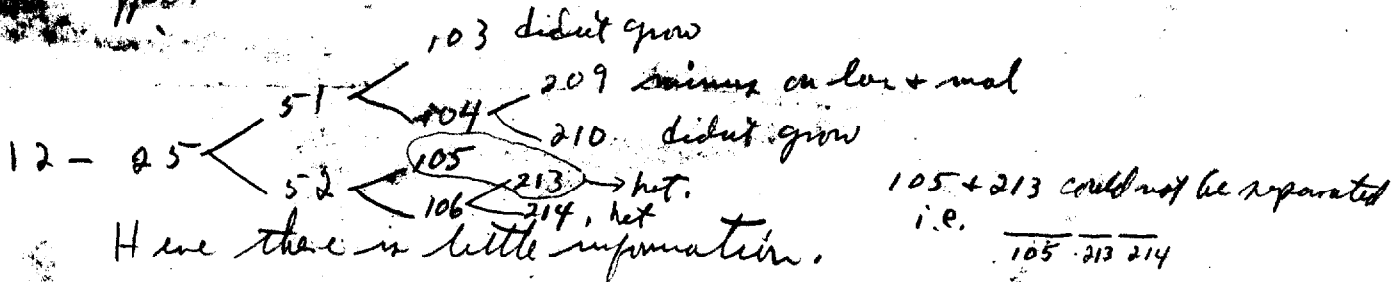 103 didn't grow
51 209 minus on lac + mal
104
12 - 25 210 didn't grow
105
52 213 → het.
106 214, het
105 + 213 could not be separated
i.e. 105 213 214
Here there is little information.